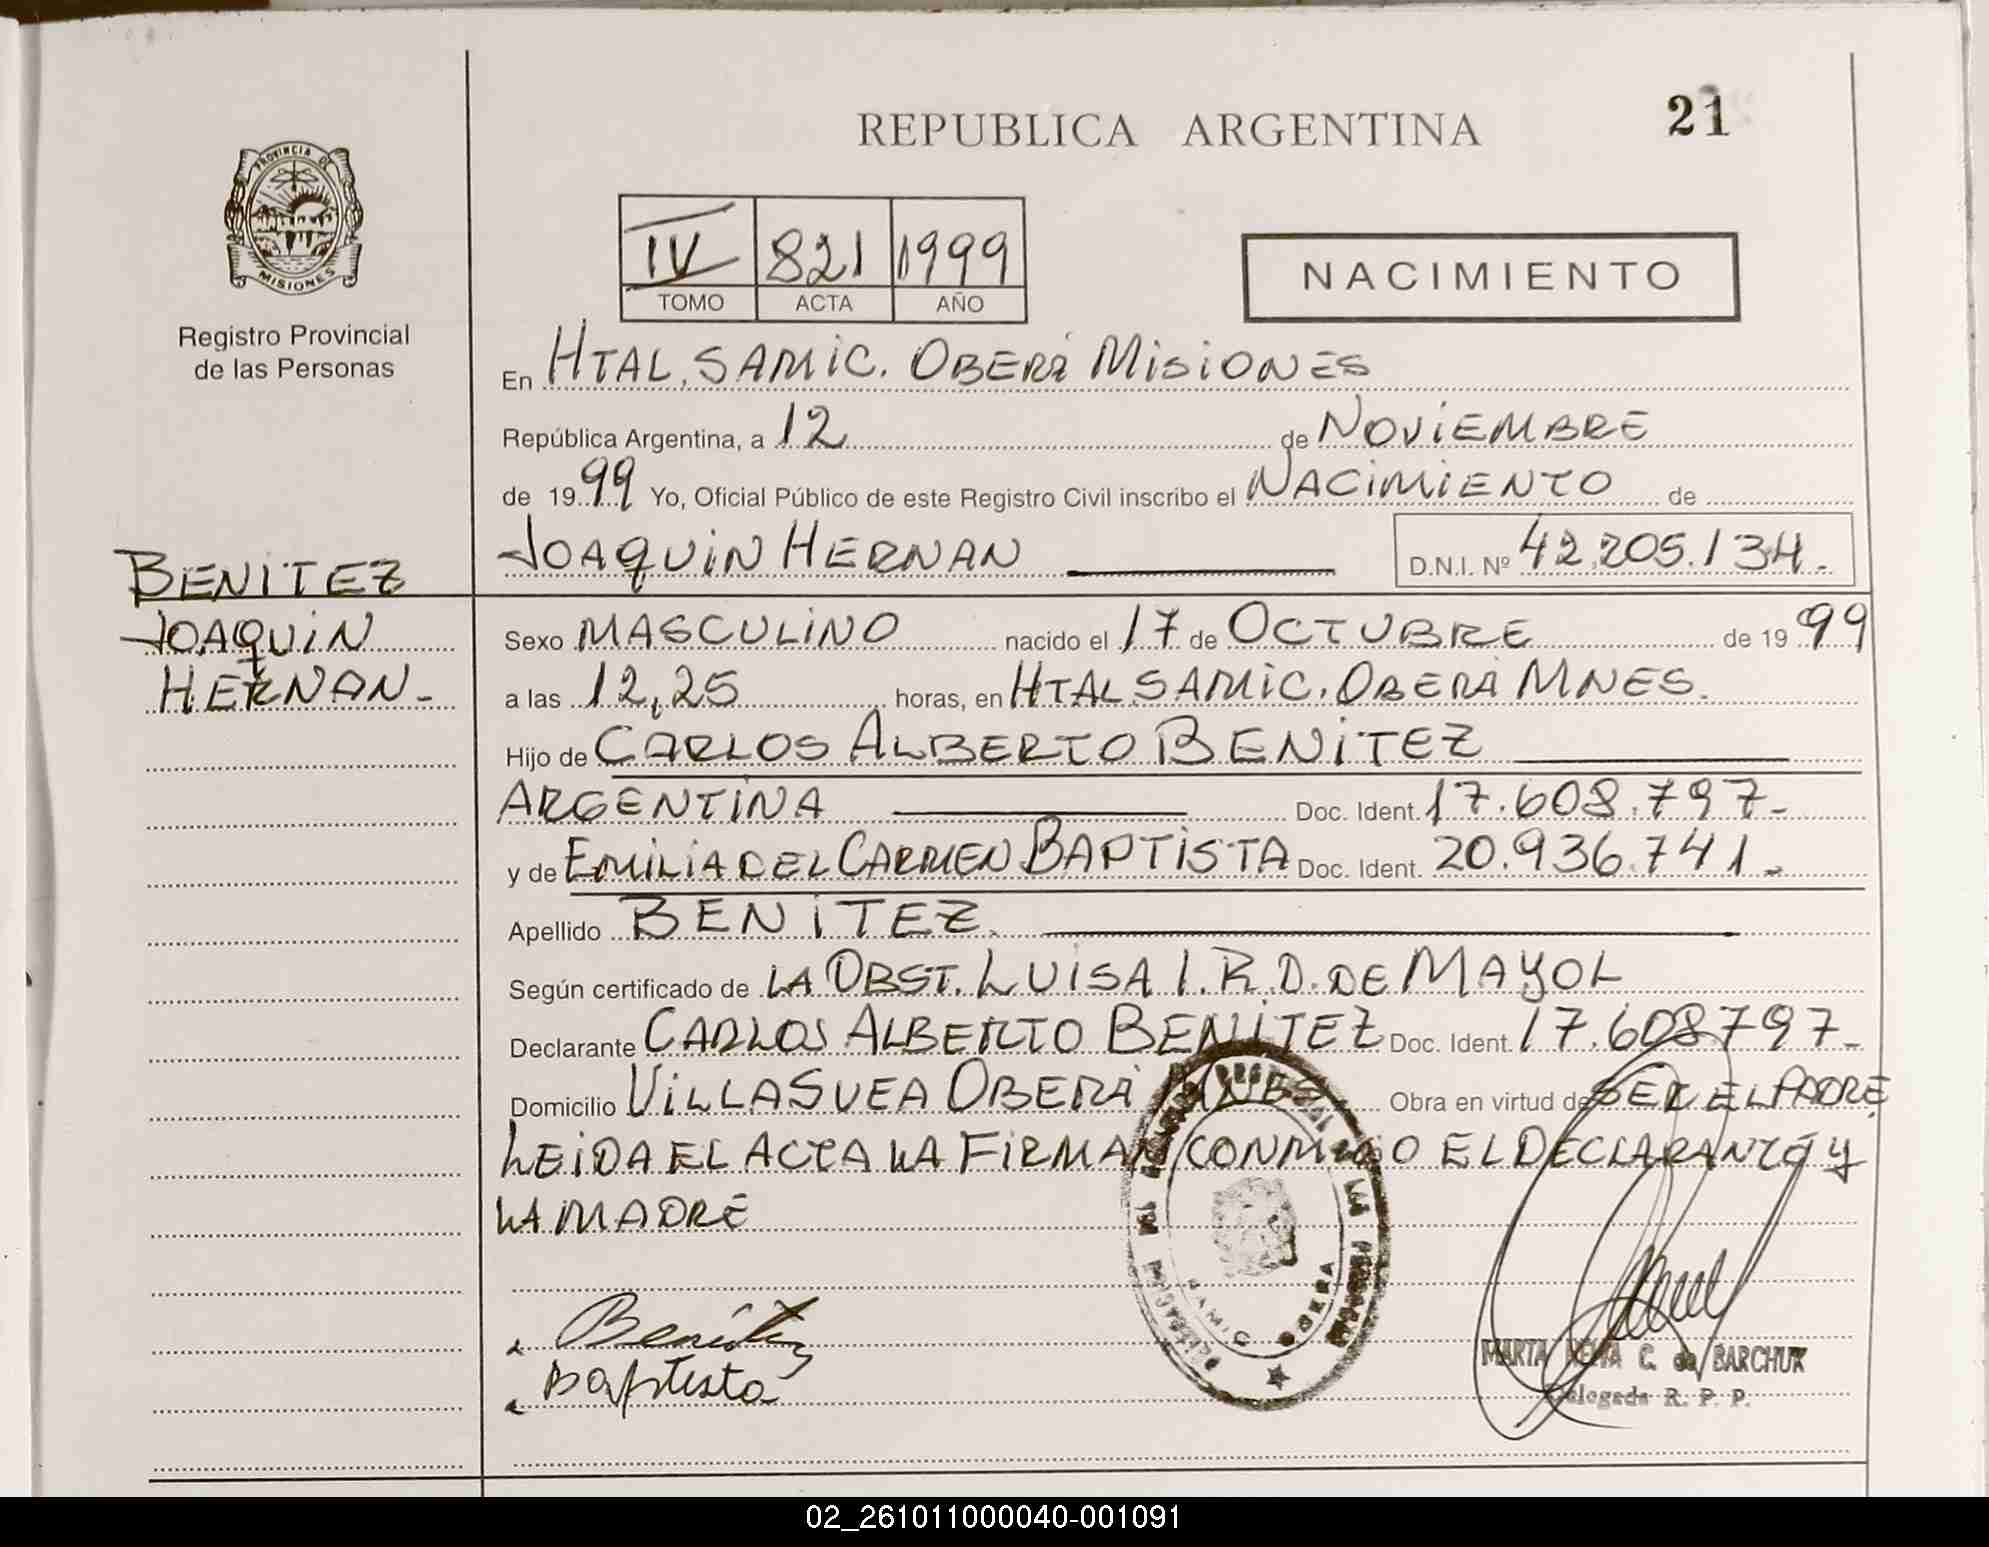 21
REPUBLICA ARGENTINA
PROVINCIA DE
MISIONES
Registro Provincial
de las Personas
IV 821 1999
TOMO ACTA AÑO
NACIMIENTO
En HTAL. SAMIC. OBERÁ MISIONES
República Argentina, a 12 de NOVIEMBRE
de 1999 Yo, Oficial Público de este Registro Civil inscribo el NACIMIENTO de
JOAQUIN HERNAN D.N.I. Nº 42.205.134.-
BENITEZ
JOAQUIN
HERNAN.-
Sexo MASCULINO nacido el 17 de OCTUBRE de 1999
a las 12,25 horas, en HTAL SAMIC. OBERÁ MNES.
Hijo de CARLOS ALBERTO BENITEZ
ARGENTINA Doc. Ident. 17.608.797.-
y de EMILIA DEL CARMEN BAPTISTA Doc. Ident. 20.936.741.-
Apellido BENITEZ.
Según certificado de LA OBST. LUISA I. R. D. DE MAYOL
Declarante CARLOS ALBERTO BENITEZ Doc. Ident. 17.608797.-
Domicilio VILLA SVEA OBERÁ MNES Obra en virtud de SER EL PADRE
LEIDA EL ACTA LA FIRMAN CONMIGO EL DECLARANTE Y
LA MADRE
Benítez
Baptista
DE LAS PERSONAS
OBERA
MARTA C. de BARCHUK
Delegada R. P. P.
02_261011000040-001091